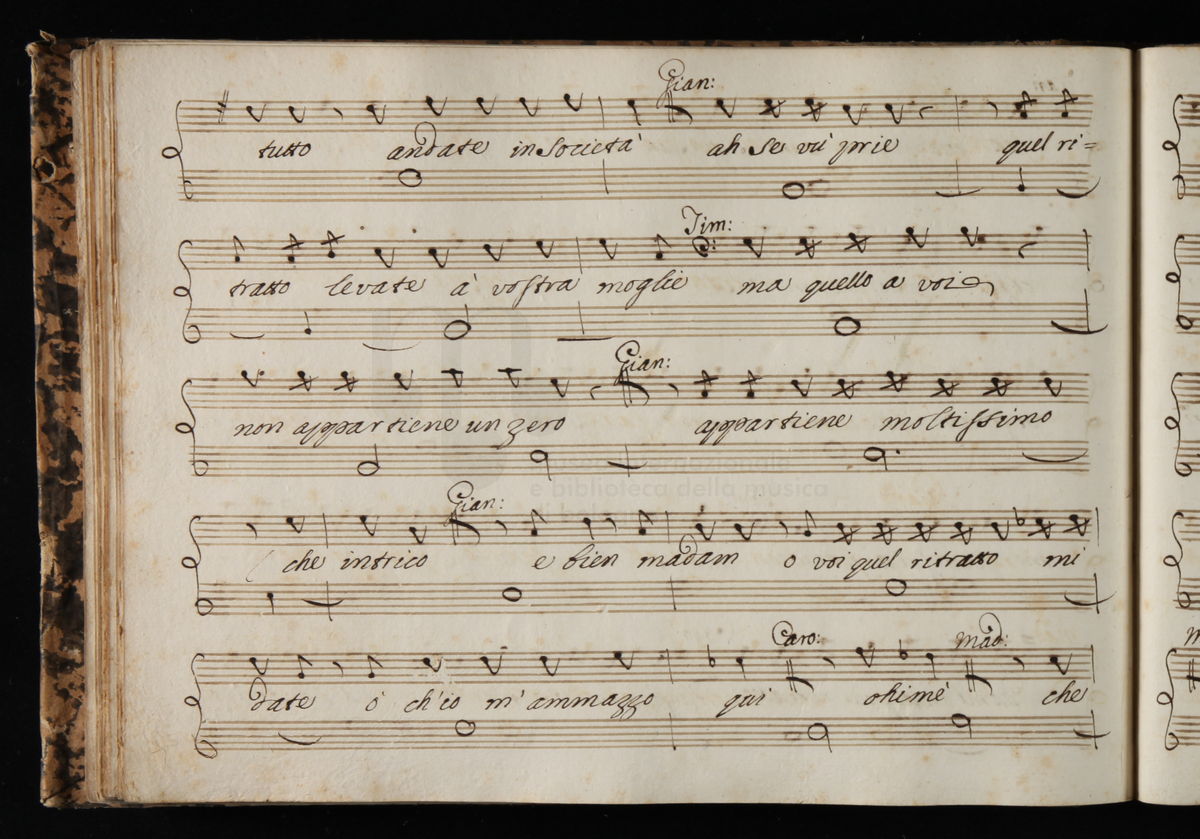 Gian:
tutto andate in Società ah se vù prie quel ri=
Tim:
tratto levate à vostra moglie ma quello a voi
Gian:
non appartiene un zero appartiene moltissimo
e biblioteca della musica
Gian:
( che intrico e bien madam o voi quel ritratto mi
Caro: Mad:
date ò ch'io m'ammazzo qui ohimè che